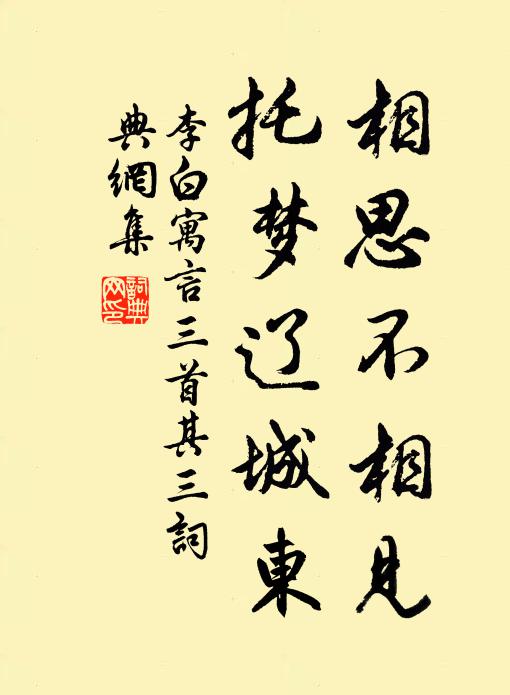 相思不相见
托梦辽城東
李白寓言三首其三詞
典網集
詞典
网印